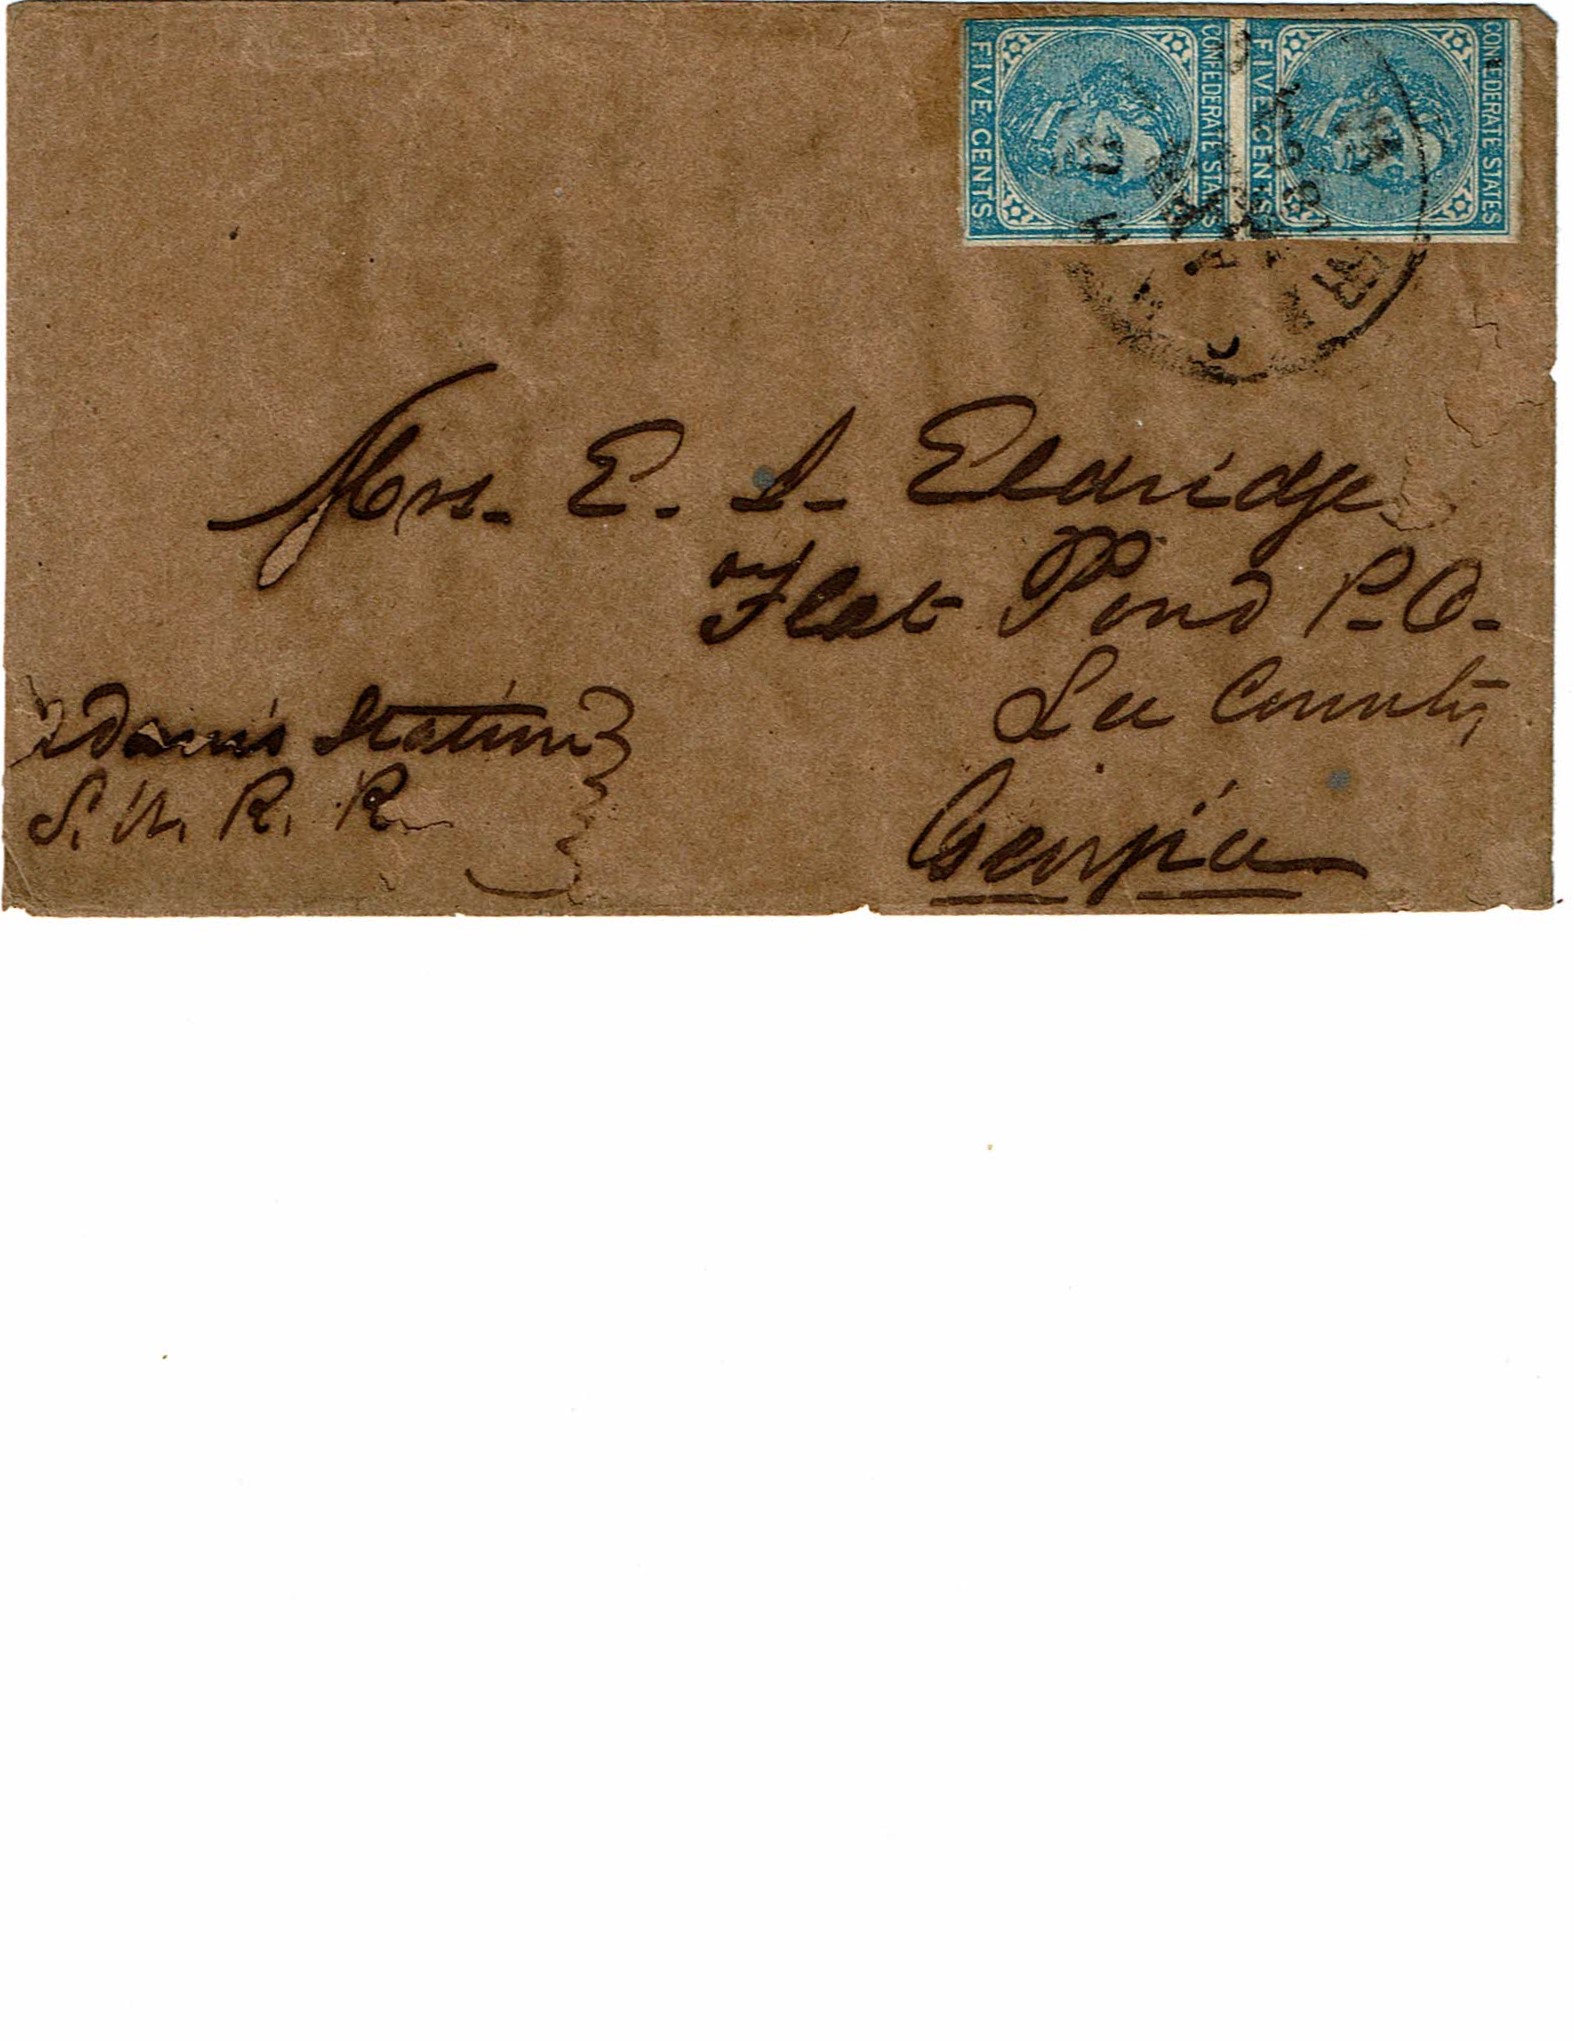 CONFEDERATE STATES
FIVE CENTS
CONFEDERATE STATES
FIVE CENTS
Mrs. E. S. Eldridge
Flat Pond P. O.
Lee County
Georgia
Station
S. W. R. R.